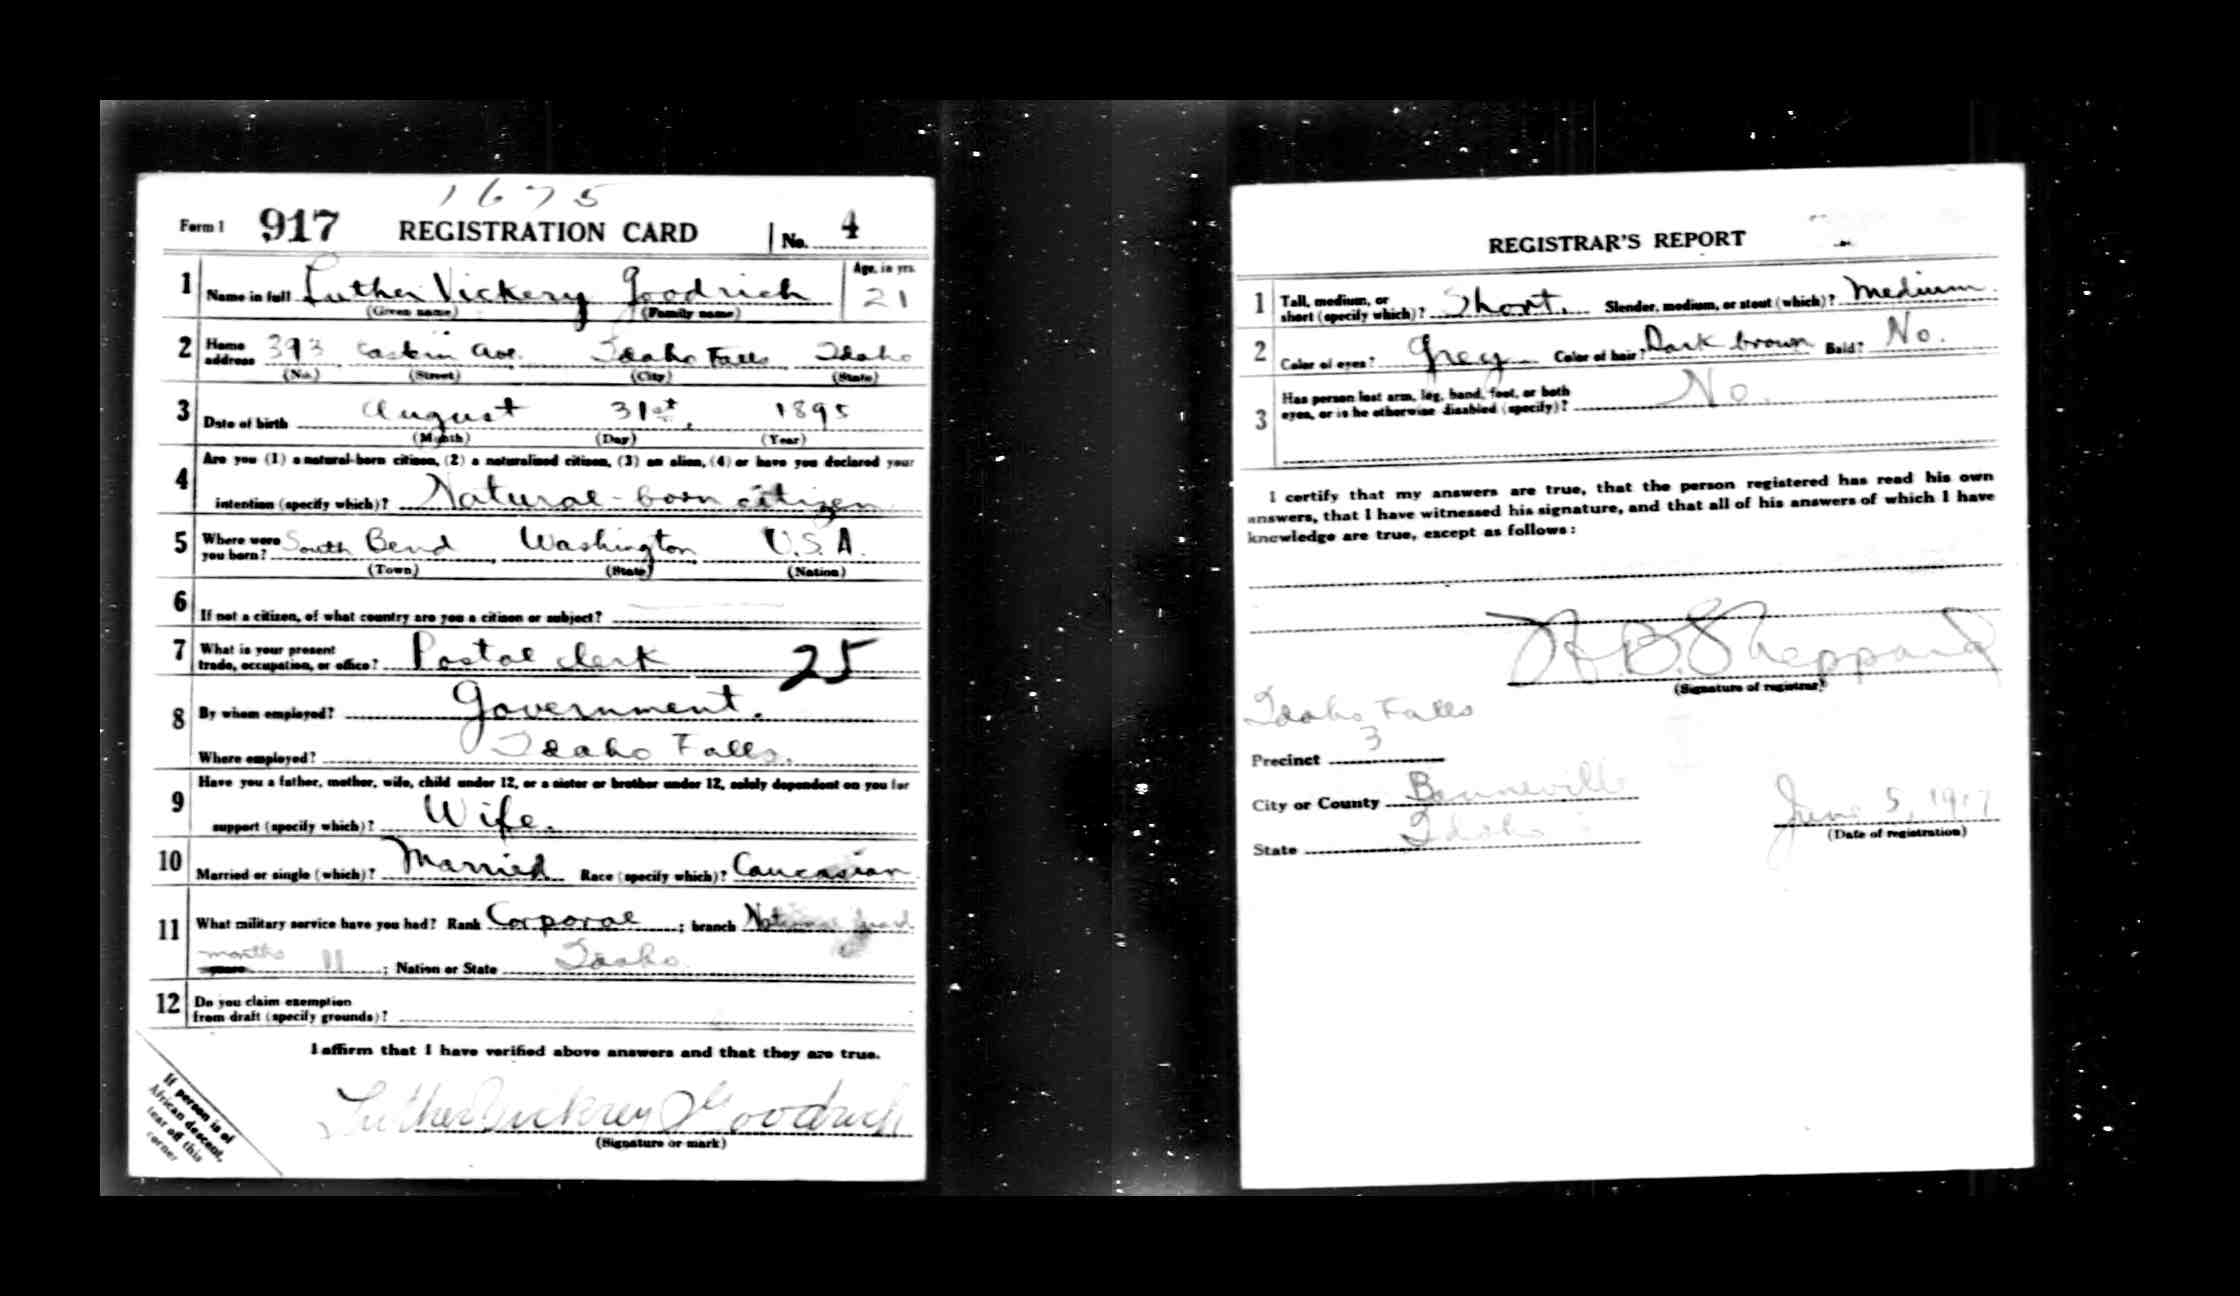 1675
Form 1 917 REGISTRATION CARD No. 4
1 Name in full Luther Vickery Goodrich Age, in yrs. 21
(Given name) (Family name)
2 Home address 393 Eastern Ave. Idaho Falls Idaho
(No.) (Street) (City) (State)
3 Date of birth August 31st, 1895
(Month) (Day) (Year)
4 Are you (1) a natural-born citizen, (2) a naturalized citizen, (3) an alien, (4) or have you declared your
intention (specify which)? Natural-born citizen
5 Where were you born? South Bend, Washington, U.S.A.
(Town) (State) (Nation)
6 If not a citizen, of what country are you a citizen or subject?
7 What is your present
trade, occupation, or office? Postal clerk 25
8 By whom employed? Government.
Where employed? Idaho Falls.
9 Have you a father, mother, wife, child under 12, or a sister or brother under 12, solely dependent on you for
support (specify which)? Wife.
10 Married or single (which)? Married. Race (specify which)? Caucasian
11 What military service have you had? Rank Corporal; branch National Guard
months years 11; Nation or State Idaho.
12 Do you claim exemption
from draft (specify grounds)?
I affirm that I have verified above answers and that they are true.
Luther Vickrey Goodrich
(Signature or mark)
If person is of
African descent,
tear off this
corner
REGISTRAR'S REPORT
1 Tall, medium, or
short (specify which)? Short. Slender, medium, or stout (which)? Medium.
2 Color of eyes? Grey Color of hair? Dark brown Bald? No.
3 Has person lost arm, leg, hand, foot, or both
eyes, or is he otherwise disabled (specify)? No.
I certify that my answers are true, that the person registered has read his own
answers, that I have witnessed his signature, and that all of his answers of which I have
knowledge are true, except as follows:
B. Sheppard
(Signature of registrar)
Idaho Falls
Precinct 3
City or County Bonneville
State Idaho
June 5, 1917
(Date of registration)